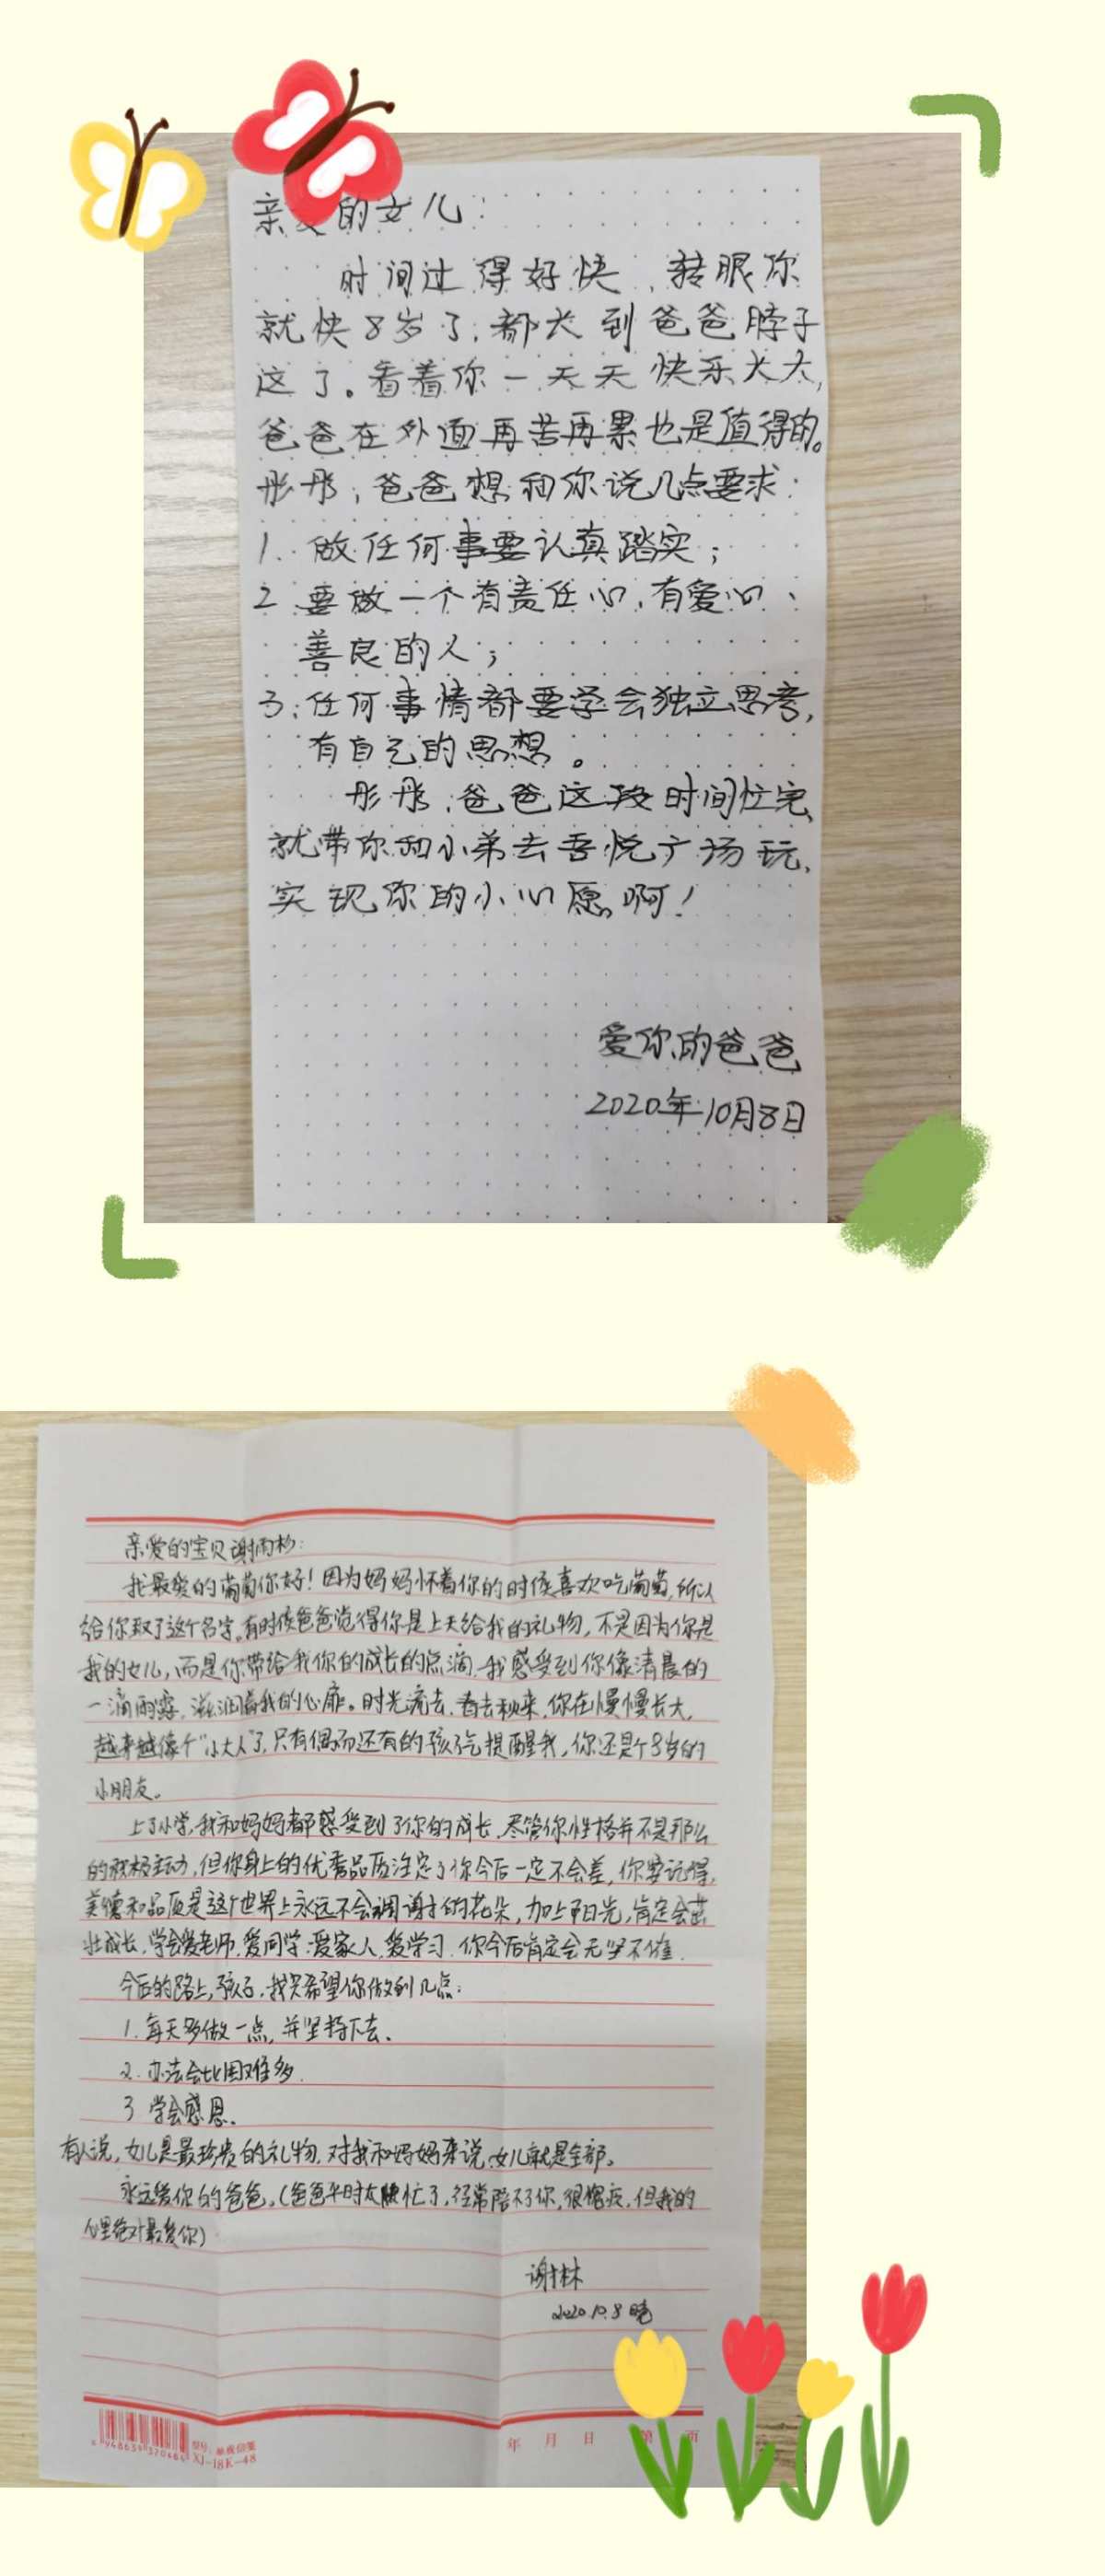 亲爱的女儿：
时间过得好快，转眼你
就快8岁了，都长到爸爸脖子
这了。看着你一天天快乐长大，
爸爸在外面再苦再累也是值得的。
彤彤，爸爸想和你说几点要求：
1. 做任何事要认真踏实；
2. 要做一个有责任心，有爱心、
善良的人；
3. 任何事情都要学会独立思考，
有自己的思想。
彤彤，爸爸这段时间忙完，
就带你和小弟去吾悦广场玩，
实现你的小心愿啊！
爱你的爸爸
2020年10月8日
亲爱的宝贝谢雨杉：
我最爱的葡萄你好！因为妈妈怀着你的时候喜欢吃葡萄，所以
给你取了这个名字。有时候爸爸觉得你是上天给我的礼物，不是因为你是
我的女儿，而是你带给我你的成长的点滴，我感受到你像清晨的
一滴雨露，滋润着我的心扉。时光流去，春去秋来，你在慢慢长大，
越来越像个“小大人”了，只有偶而还有的孩子气提醒我，你还是个8岁的
小朋友。
上了小学，我和妈妈都感受到了你的成长，尽管你性格并不是那么
的积极主动，但你身上的优秀品质注定了你今后一定不会差，你要记得，
美德和品质是这个世界上永远不会凋谢的花朵，加上阳光，肯定会茁
壮成长，学会爱老师，爱同学，爱家人，爱学习，你今后肯定会无坚不摧。
今后的路上，孩子，我只希望你做到几点：
1. 每天多做一点，并坚持下去。
2. 办法会比困难多
3 学会感恩。
有人说，女儿是最珍贵的礼物，对我和妈妈来说，女儿就是全部。
永远爱你的爸爸。（爸爸平时太忙了，经常陪不了你，很愧疚，但我的
心里绝对最爱你）
谢林
2020.10.8晚
年 月 日 第 页
XJ-18K-48